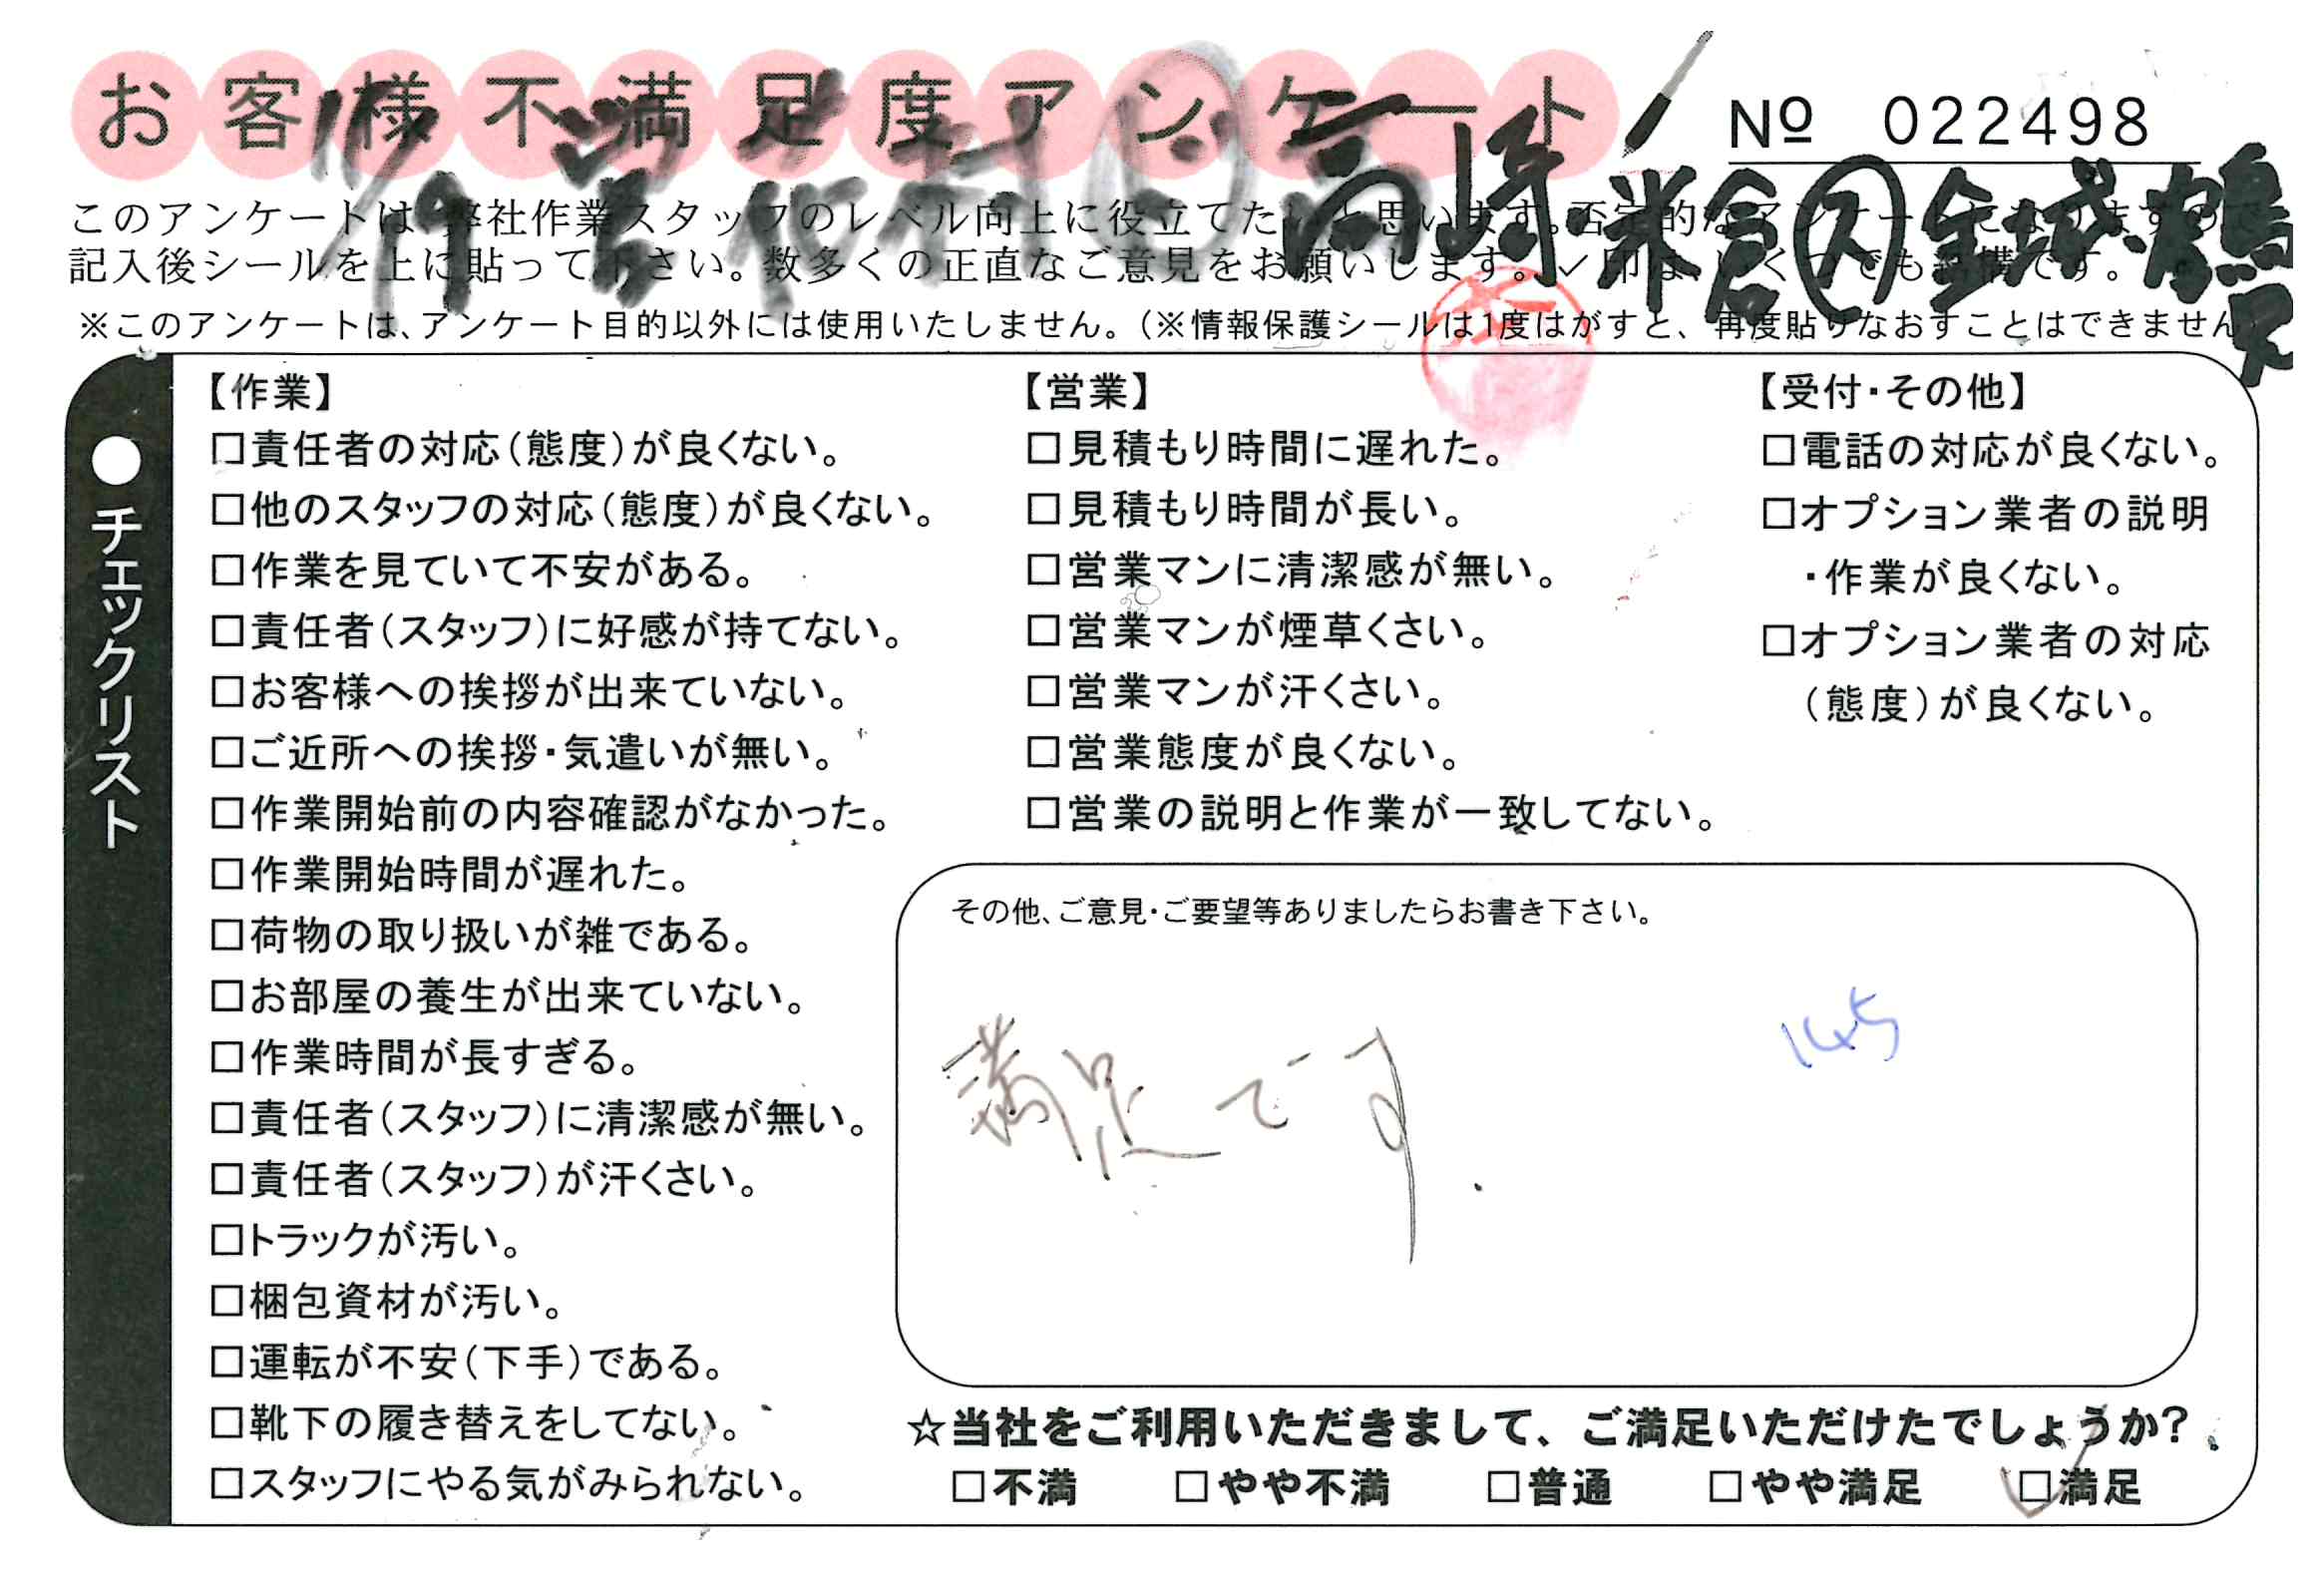 お客様不満足度アンケート
Nº 022498
1/19 高崎 米倉 金城
このアンケートは 弊社作業スタッフのレベル向上に役立てたいと思います。否定的なアンケートになりますので
記入後シールを上に貼って下さい。数多くの正直なご意見をお願いします。✓印は、いくつでも結構です。
※このアンケートは、アンケート目的以外には使用いたしません。(※情報保護シールは1度はがすと、再度貼りなおすことはできません)
●チェックリスト
【作業】
□責任者の対応(態度)が良くない。
□他のスタッフの対応(態度)が良くない。
□作業を見ていて不安がある。
□責任者(スタッフ)に好感が持てない。
□お客様への挨拶が出来ていない。
□ご近所への挨拶・気遣いが無い。
□作業開始前の内容確認がなかった。
□作業開始時間が遅れた。
□荷物の取り扱いが雑である。
□お部屋の養生が出来ていない。
□作業時間が長すぎる。
□責任者(スタッフ)に清潔感が無い。
□責任者(スタッフ)が汗くさい。
□トラックが汚い。
□梱包資材が汚い。
□運転が不安(下手)である。
□靴下の履き替えをしてない。
□スタッフにやる気がみられない。
【営業】
□見積もり時間に遅れた。
□見積もり時間が長い。
□営業マンに清潔感が無い。
□営業マンが煙草くさい。
□営業マンが汗くさい。
□営業態度が良くない。
□営業の説明と作業が一致してない。
【受付・その他】
□電話の対応が良くない。
□オプション業者の説明
・作業が良くない。
□オプション業者の対応
(態度)が良くない。
その他、ご意見・ご要望等ありましたらお書き下さい。
満足です.
145
☆当社をご利用いただきまして、ご満足いただけたでしょうか?
□不満 □やや不満 □普通 □やや満足 ☑満足